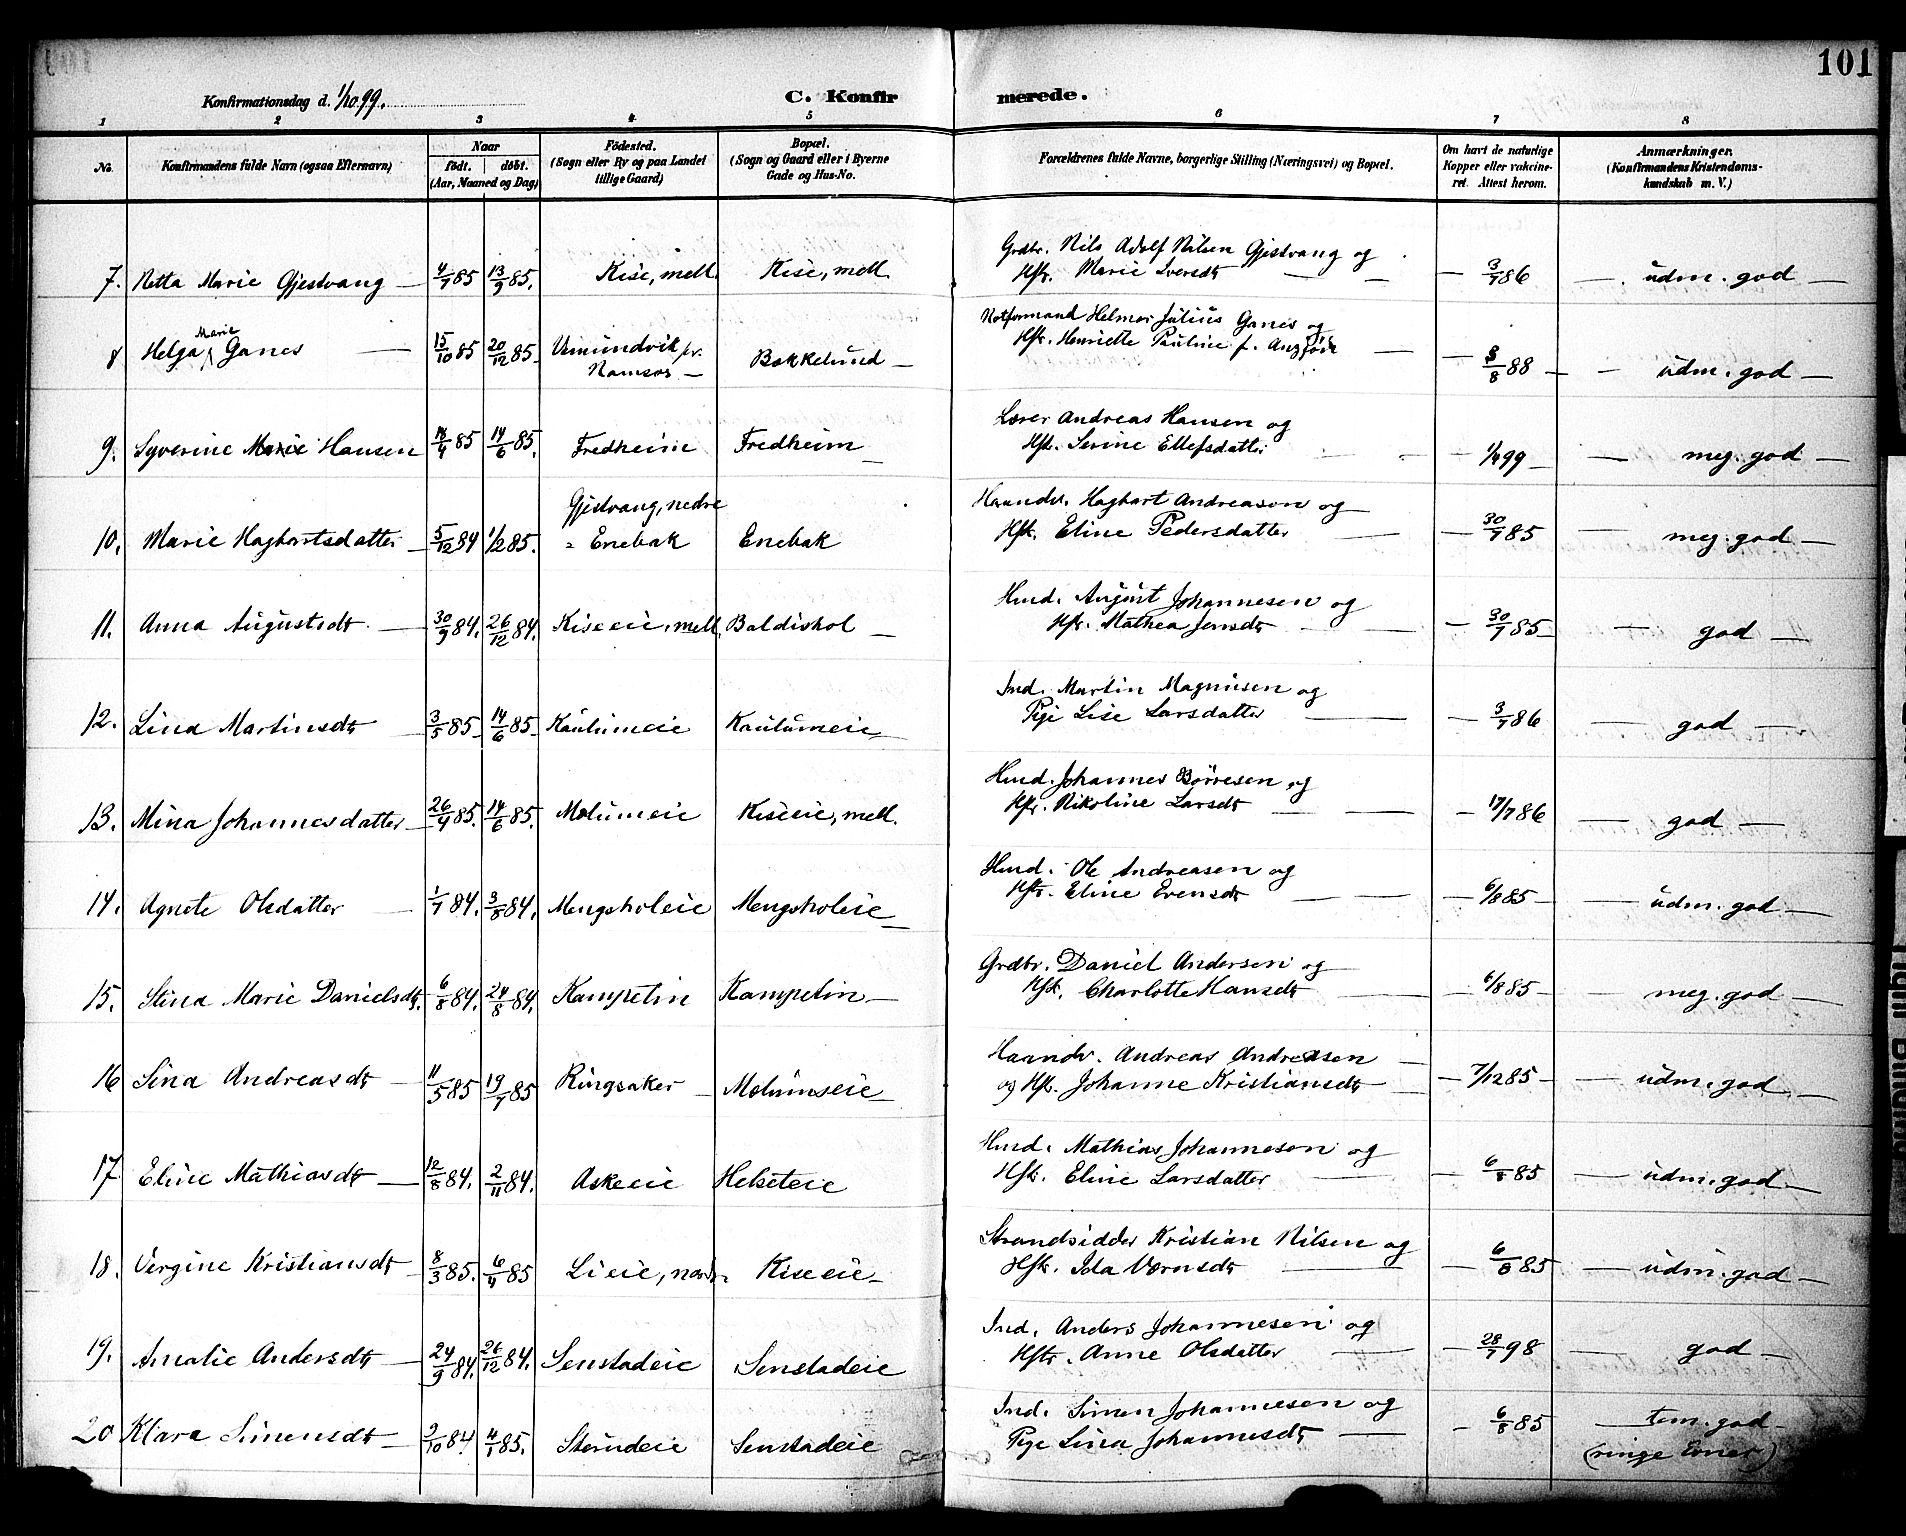 101
Konfirmationsdag d. 1/10 99.
C. Konfirmerede.
1 2 3 4 5 6 7 8
No. Konfirmandens fulde Navn (ogsaa Efternavn) Naar født. døbt. (Aar, Maaned og Dag) Fødested. (Sogn eller By og paa Landet tillige Gaard) Bopæl. (Sogn og Gaard eller i Byerne Gade og Hus-No. Forældrenes fulde Navne, borgerlige Stilling (Næringsvei) og Bopæl. Om havt de naturlige Kopper eller vakcineret. Attest herom. Anmærkninger. (Konfirmandens Kristendomskundskab m. V.)
Grdbr. Nils Adolf Nilsen Gjestvang og
7. Netta Marie Gjestvang — 4/7 85 13/9 85. Kise, mell. Kise, mell. Hfr. Marie Iversdt — — 3/7 86 — udm. god —
Marie
8 Helga Ganes — 15/10 85 20/12 85. Namsos — Bakkelund — Helmer Julius Ganes og
Hfr. Henriette Pauline f. — 8/8 88 — udm. god —
Lærer Andreas Hansen og
9. Syverine Marie Hansen 18/4 85 14/6 85. Fredheim Fredheim — Hfr. Serine Ellefsdatter — 1/9 99 — meg. god —
Gjestvang, nedre Haandv. Hagbart Andreason og
10. Marie Hagbartsdatter — 5/12 84 1/2 85. Enebak Enebak Hfr. Eline Pedersdatter — 30/7 85 — meg. god —
Hmd. August Johannesen og
11. Anna Augustsdt. — 30/9 84. 26/12 84. Kiseeie, mell. Baldishol — Hfr. Mathea Jensdt — 30/7 85 — god —
Ind. Martin Magnusen og
12. Lina Martinsdt 3/5 85 14/6 85 Kaulumeie Kaulumeie Pige Lise Larsdatter — 3/7 86 — god —
Hmd. Johannes Børresen og
13. Mina Johannesdatter 26/4 85. 14/6 85. Molumeie Kiseeie, mell. Hfr. Nikoline Larsdt — 17/7 86 — god —
Hmd. Ole Andreasen og
14. Agnete Olsdatter — 1/7 84. 3/8 84. Mengsholeie Mengsholeie — Hfr. Eline Evensdt — 6/8 85 — udm. god —
Grdbr. Daniel Andersen og
15. Stina Marie Danielsdt. 6/8 84. 24/8 84. Kampetin Kampetin — Hfr. Charlotte Hansdt — 6/8 85 — meg. god —
Haandv. Andreas Andreasen
16 Sina Andreasdt — 11/5 85 19/7 85 Ringsaker — Molumseie og Hfr. Johanne Kristiansdt — 7/12 85 — udm. god —
Hmd. Mathias Johannesen og
17. Eline Mathiasdt — 12/8 84. 2/11 84. Askeeie Helseteie Hfr. Eline Larsdatter — 6/8 85 — udm. god —
Strandsidder Kristian Nilsen og
18. Virgine Kristiansdt 8/3 85. 6/4 85 Lieie, nordr. Kiseeie — Hfr. Ida — 6/8 85 — udm. god —
Ind. Anders Johannesen og
19. Amalie Andersdt — 24/9 84. 26/12 84. Senstadeie Senstadeie Hfr. Anne Olsdatter — 28/7 98 — god —
Ind. Simen Johannesen og
20 Klara Simensdt — 9/10 84 4/1 85. Senstadeie Pige Lina Johannesdt — 6/8 85 — tem. god —
(ringe Evner)